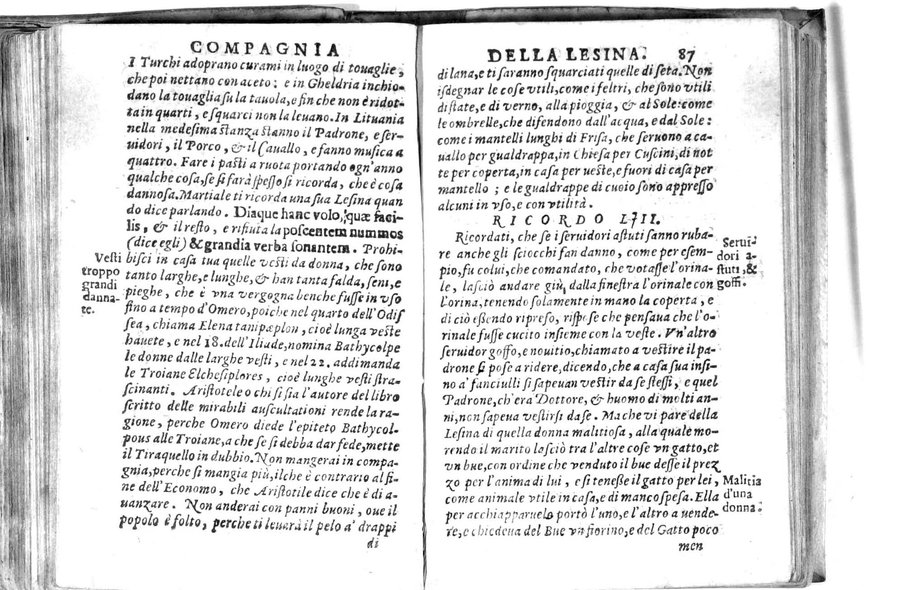 COMPAGNIA
I Turchi adoprano curami in luogo di touaglie,
che poi nettano con aceto: e in Gheldria inchio-
dano la touaglia su la tauola, e fin che non è ridot-
ta in quarti, e squarci non la leuano. In Lituania
nella medesima stanza stanno il Padrone, e ser-
uidori, il Porco, & il Cauallo, e fanno musica a
quattro. Fare i pasti a ruota portando ogn'anno
qualche cosa, se si farà spesso si ricorda, che è cosa
dannosa. Martiale ti ricorda una sua Lesina quan
do dice parlando. Diaque hanc volo, quæ faci-
lis, & il resto, e rifiuta la poscentem nummos
(dice egli) & grandia verba sonantem. Prohi-
bisci in casa tua quelle vesti da donna, che sono
tanto larghe, e lunghe, & han tanta falda, seni, e
pieghe, che è vna vergogna benche fusse in vso
fino a tempo d'Omero, poiche nel quarto dell'Odis
sea, chiama Elena tanipæplon, cioè lunga veste
hauete, e nel 18. dell'Iliade, nomina Bathycolpe
le donne dalle larghe vesti, e nel 22. addimanda
le Troiane Elchesiplores, cioè lunghe vesti stra-
scinanti. Aristotele o chi si sia l'autore del libro
scritto delle mirabili auscultationi rende la ra-
gione, perche Omero diede l'epiteto Bathycol-
pous alle Troiane, a che se si debba dar fede, mette
il Tiraquello in dubbio. Non mangerai in compa-
gnia, perche si mangia più, ilche è contrario al fi-
ne dell'Economo, che Aristotile dice che è di a-
uanzare. Non anderai con panni buoni, oue il
popolo è folto, perche ti leuarà il pelo a' drappi
di
Vesti
troppo
grandi
danna-
te.
DELLA LESINA. 87
di lana, e ti saranno squarciati quelle di seta. Non
isdegnar le cose vtili, come i feltri, che sono vtili
di state, e di verno, alla pioggia, & al Sole: come
le ombrelle, che difendono dall'acqua, e dal Sole:
come i mantelli lunghi di Frisa, che seruono a ca-
uallo per gualdrappa, in Chiesa per Cuscini, di not
te per coperta, in casa per ueste, e fuori di casa per
mantello; e le gualdrappe di cuoio sono appresso
alcuni in vso, e con vtilità.
RICORDO LIII.
Ricordati, che se i seruidori astuti sanno ruba-
re anche gli sciocchi fan danno, come per esem-
pio, fu colui, che comandato, che votasse l'orina-
le, lasciò andare giù dalla finestra l'orinale con
l'orina, tenendo solamente in mano la coperta, e
di ciò essendo ripreso, rispose che pensaua che l'o-
rinale fusse cucito insieme con la veste. Vn'altro
seruidor goffo, e nouitio, chiamato a vestire il pa-
drone si pose a ridere, dicendo, che a casa sua insi-
no a' fanciulli si sapeuan vestir da se stessi, e quel
Padrone, ch'era Dottore, & huomo di molti an-
ni, non sapeua vestirsi da se. Ma che vi pare della
Lesina di quella donna malitiosa, alla quale mo-
rendo il marito lasciò tra l'altre cose vn gatto, et
vn bue, con ordine che venduto il bue desse il prez
zo per l'anima di lui, e si tenesse il gatto per lei,
come animale vtile in casa, e di manco spesa. Ella
per acchiapparuelo portò l'uno, e l'altro a uende-
re, e chiedeua del Bue vn fiorino, e del Gatto poco
men
Serui-
dori a-
stuti, &
goffi.
Malitia
d'una
donna.